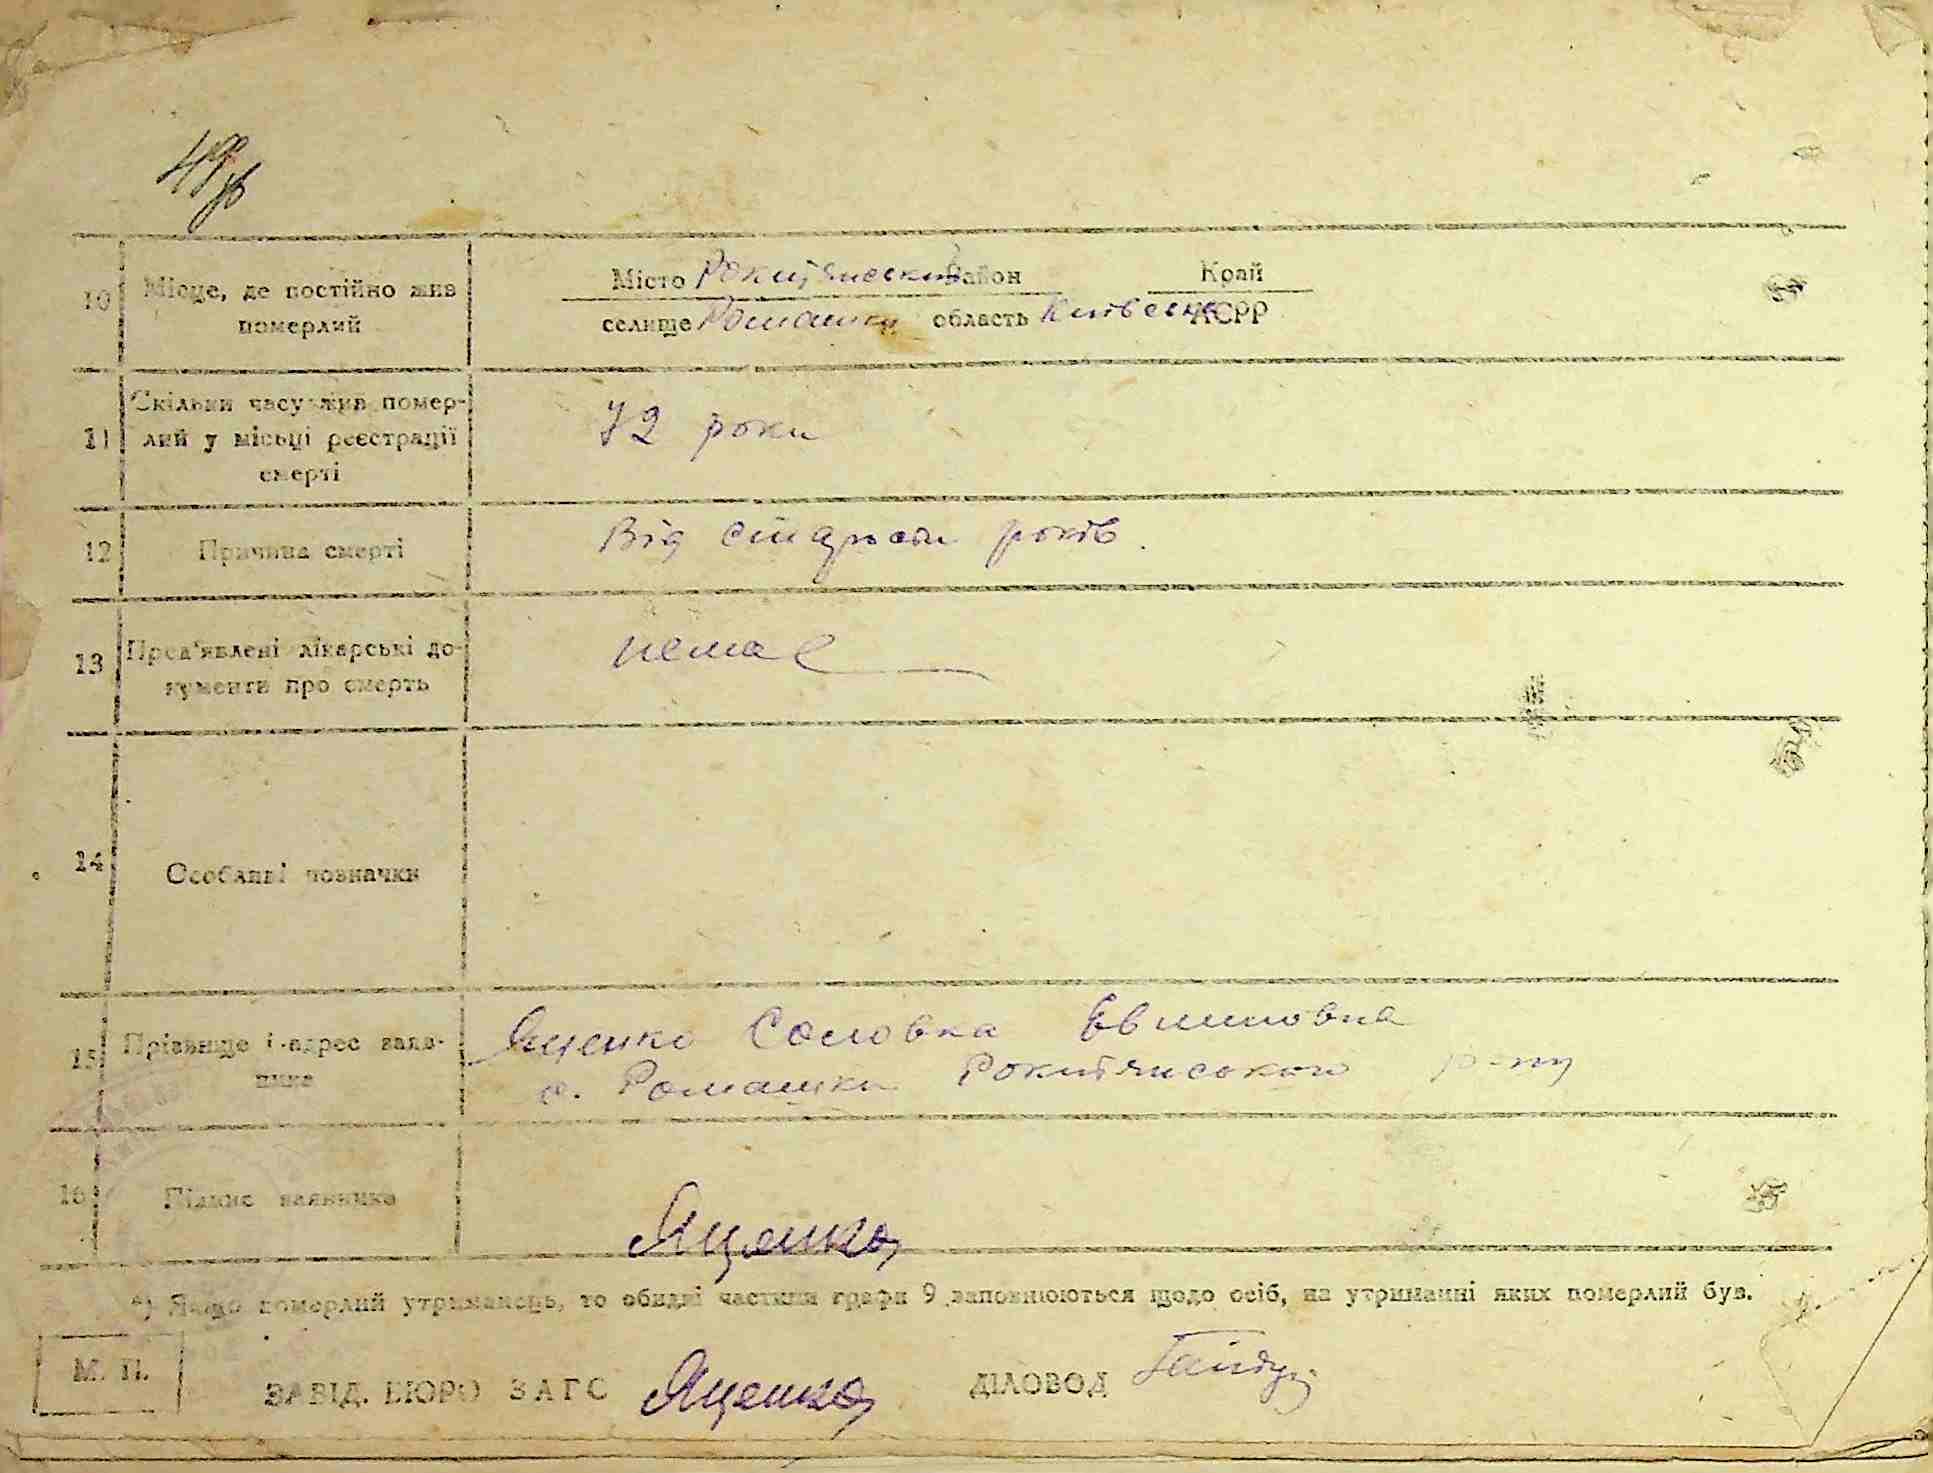 49зв
10 Місце, де постійно жив померлий
Місто Рокитянський Район Край
селище Ромашки область Київська АСРР
11 Скільки часу жив помер-
лий у місьці реєстрації
смерті
72 роки
12 Причина смерті
Від старости років.
13 Пред'явлені лікарські до-
кументи про смерть
немає
14 Особливі позначки
15 Прізвище і адрес заяв-
ника
Яценко Соловка Евминовна
с. Ромашки Рокитянського р-ну
16 Підпис заявника
Яценко
*) Якщо померлий утриманець, то обидві частини графи 9 заповнюються щодо осіб, на утриманні яких померлий був.
М. П.
ЗАВІД. БЮРО ЗАГС Яценко ДІЛОВОД